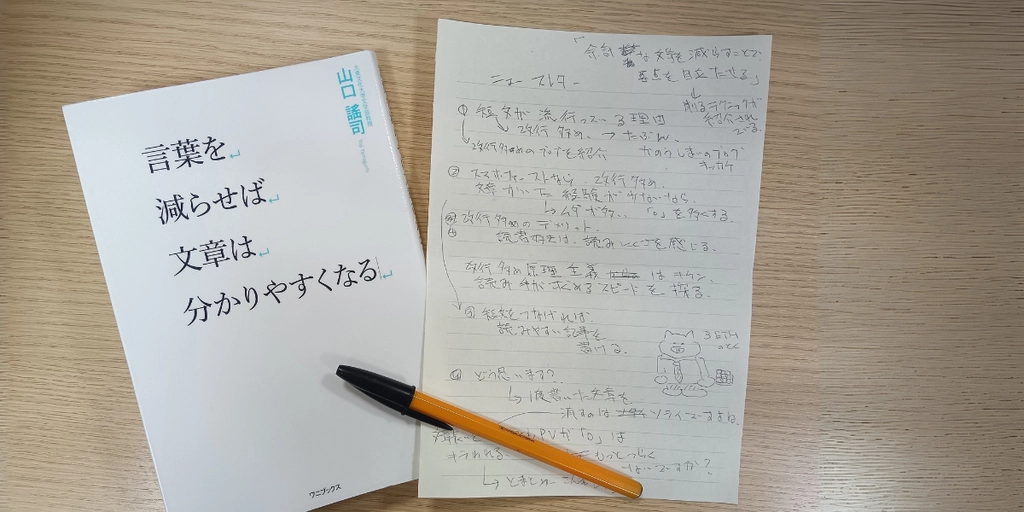 山口 謠司
言葉を↵
減らせば↵
文章は↵
分かりやすくなる↵
ワニブックス
「余計な文字を減らすことで、
要点を目立たせる」
↓
削るテクニックが
紹介され
ている。
ニュースレター
① 短文が流行っている理由
↳ 改行多め → たぶん、
改行多めのブログを紹介
ブログ
② スマホファーストなら、改行多め。
文章かいた経験が少ないなら
↳ ムダが多い 「。」を多くする。
改行多めのデメリット。
読書好きは、読みにくさを感じる。
改行多め原理主義 はキケン
読み手が求めるスピードを探る。
短文をつなげれば、
読みやすい記事を
書ける。
④ どう思います?
↳ 一度書いた文章を
減すのは ツライですよね。
PVが「0」は
もっとつらく
ないですか?